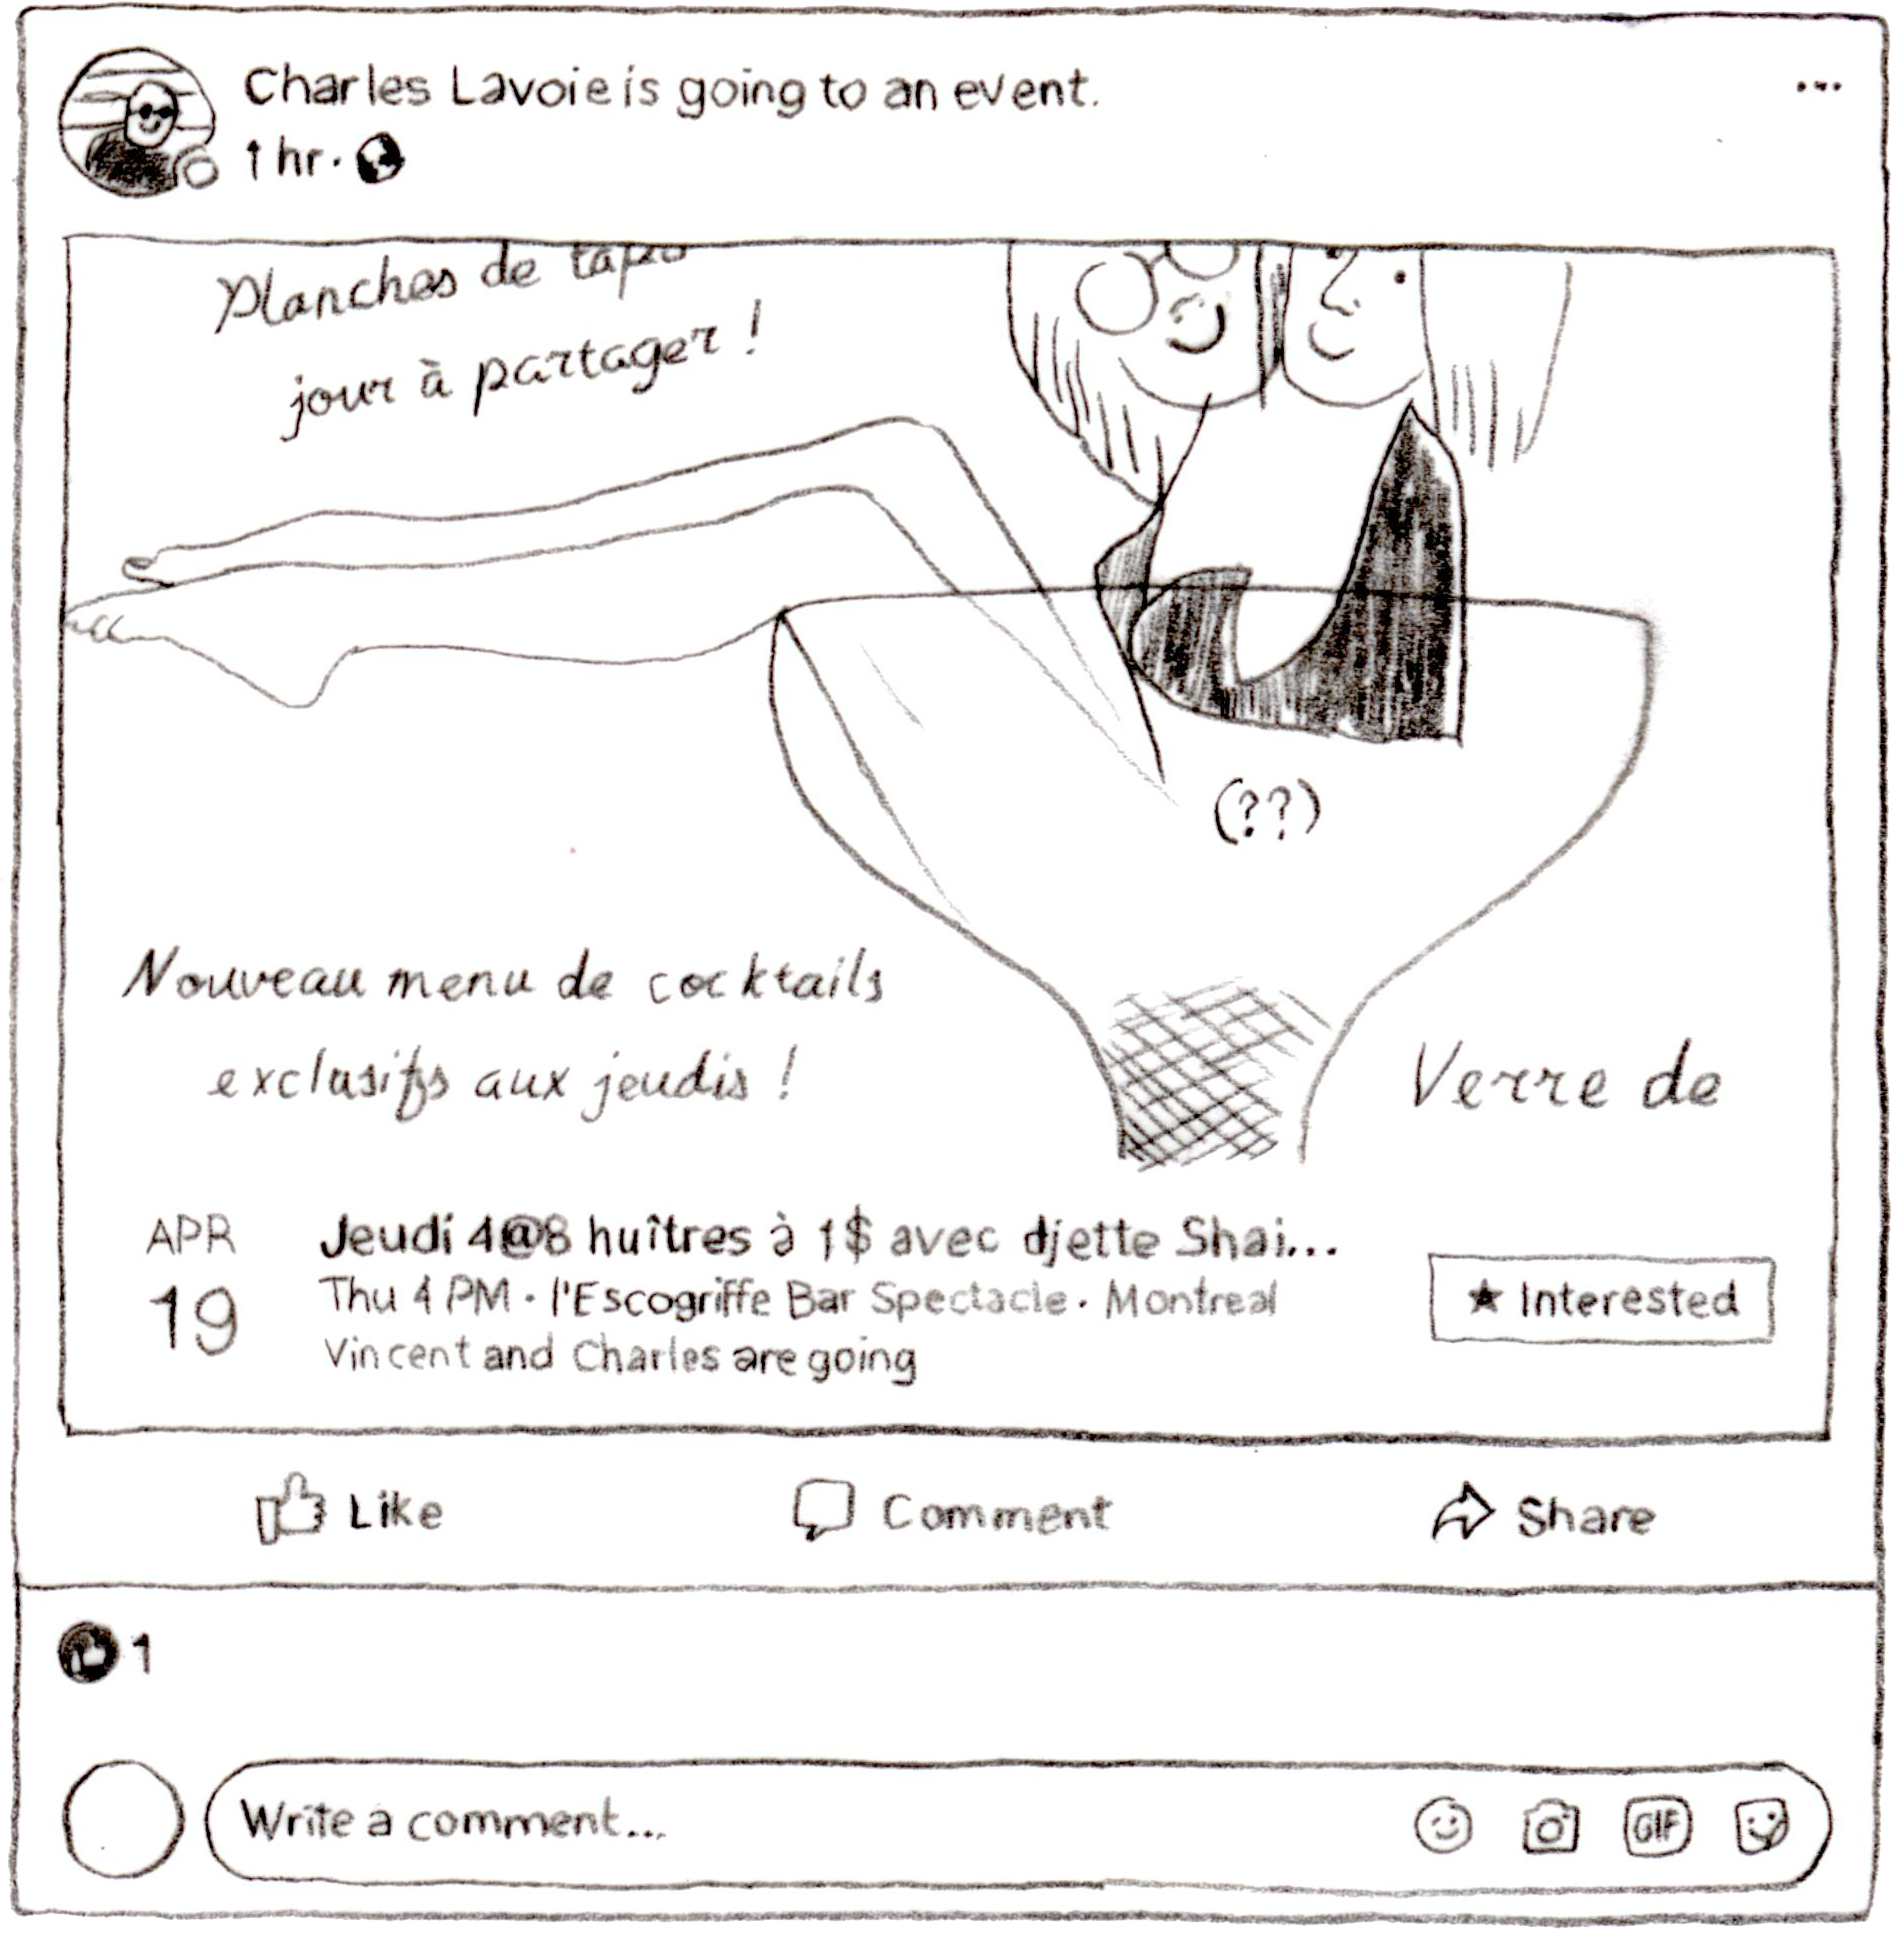 Charles Lavoie is going to an event.
1 hr ·
Planches de
jour à partager !
(??)
Nouveau menu de cocktails
exclusifs aux jeudis !
Verre de
APR
19
Jeudi 4@8 huîtres à 1$ avec djette Shai...
Thu 4 PM · l'Escogriffe Bar Spectacle · Montreal
Vincent and Charles are going
★ Interested
Like
Comment
Share
1
Write a comment...
GIF